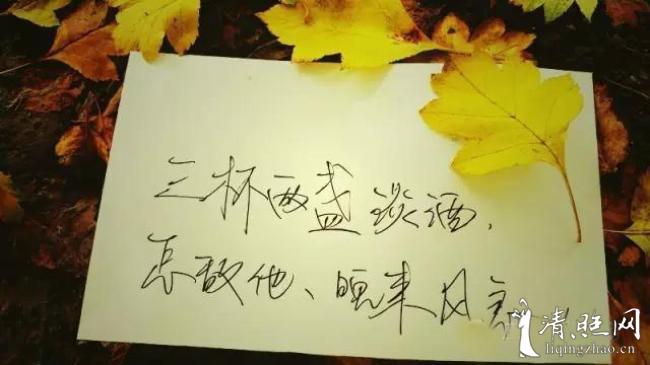 三杯两盏淡酒,
怎敌他、晚来风急
清旺网
liqingzhao.cn